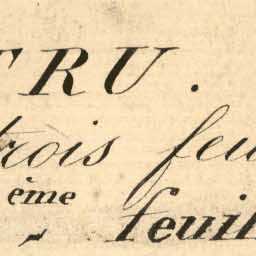 TRU.
trois feu
ème
„ feuil